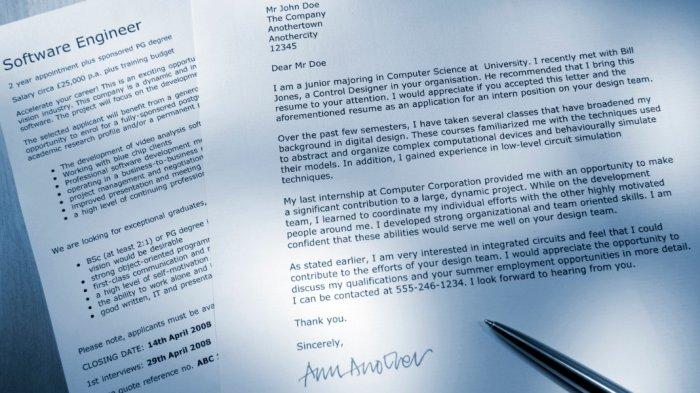 Software Engineer
2 year appointment plus sponsored PG degree
Salary circa £25,000 p.a. plus training budget
Accelerate your career! This is an exciting opportu
vision industry. This company is a dynamic and in
software. The project will focus on the developmen
The selected applicant will benefit from a generou
opportunity to enrol for a fully-sponsored postg
academic research profile and/or a permanent
The development of video analysis soft
Working with blue chip clients
Professional software development me
operating in a business-to-business
project management and negotiation
improved presentation and meeting
a high level of continuing profession
We are looking for exceptional graduates,
BSc (at least 2:1) or PG degree
vision would be desirable
strong object-oriented programm
first-class communication and
a high level of self-motivation
the ability to work alone and
good written, IT and presenta
Please note, applicants must be ava
CLOSING DATE: 14th April 2008
1st interviews: 29th April 2008
quote reference no. ABC
Mr John Doe
The Company
Anothertown
Anothercity
12345
Dear Mr Doe
I am a junior majoring in Computer Science at University. I recently met with Bill
Jones, a Control Designer in your organisation. He recommended that I bring this
resume to your attention. I would appreciate if you accepted this letter and the
aforementioned resume as an application for an intern position on your design team.
Over the past few semesters, I have taken several classes that have broadened my
background in digital design. These courses familiarized me with the techniques used
to abstract and organize complex computational devices and behaviourally simulate
their models. In addition, I gained experience in low-level circuit simulation
techniques.
My last internship at Computer Corporation provided me with an opportunity to make
a significant contribution to a large, dynamic project. While on the development
team, I learned to coordinate my individual efforts with the other highly motivated
people around me. I developed strong organizational and team oriented skills. I am
confident that these abilities would serve me well on your design team.
As stated earlier, I am very interested in integrated circuits and feel that I could
contribute to the efforts of your design team. I would appreciate the opportunity to
discuss my qualifications and your summer employment opportunities in more detail.
I can be contacted at 555-246-1234. I look forward to hearing from you.
Thank you.
Sincerely,
Ann Another